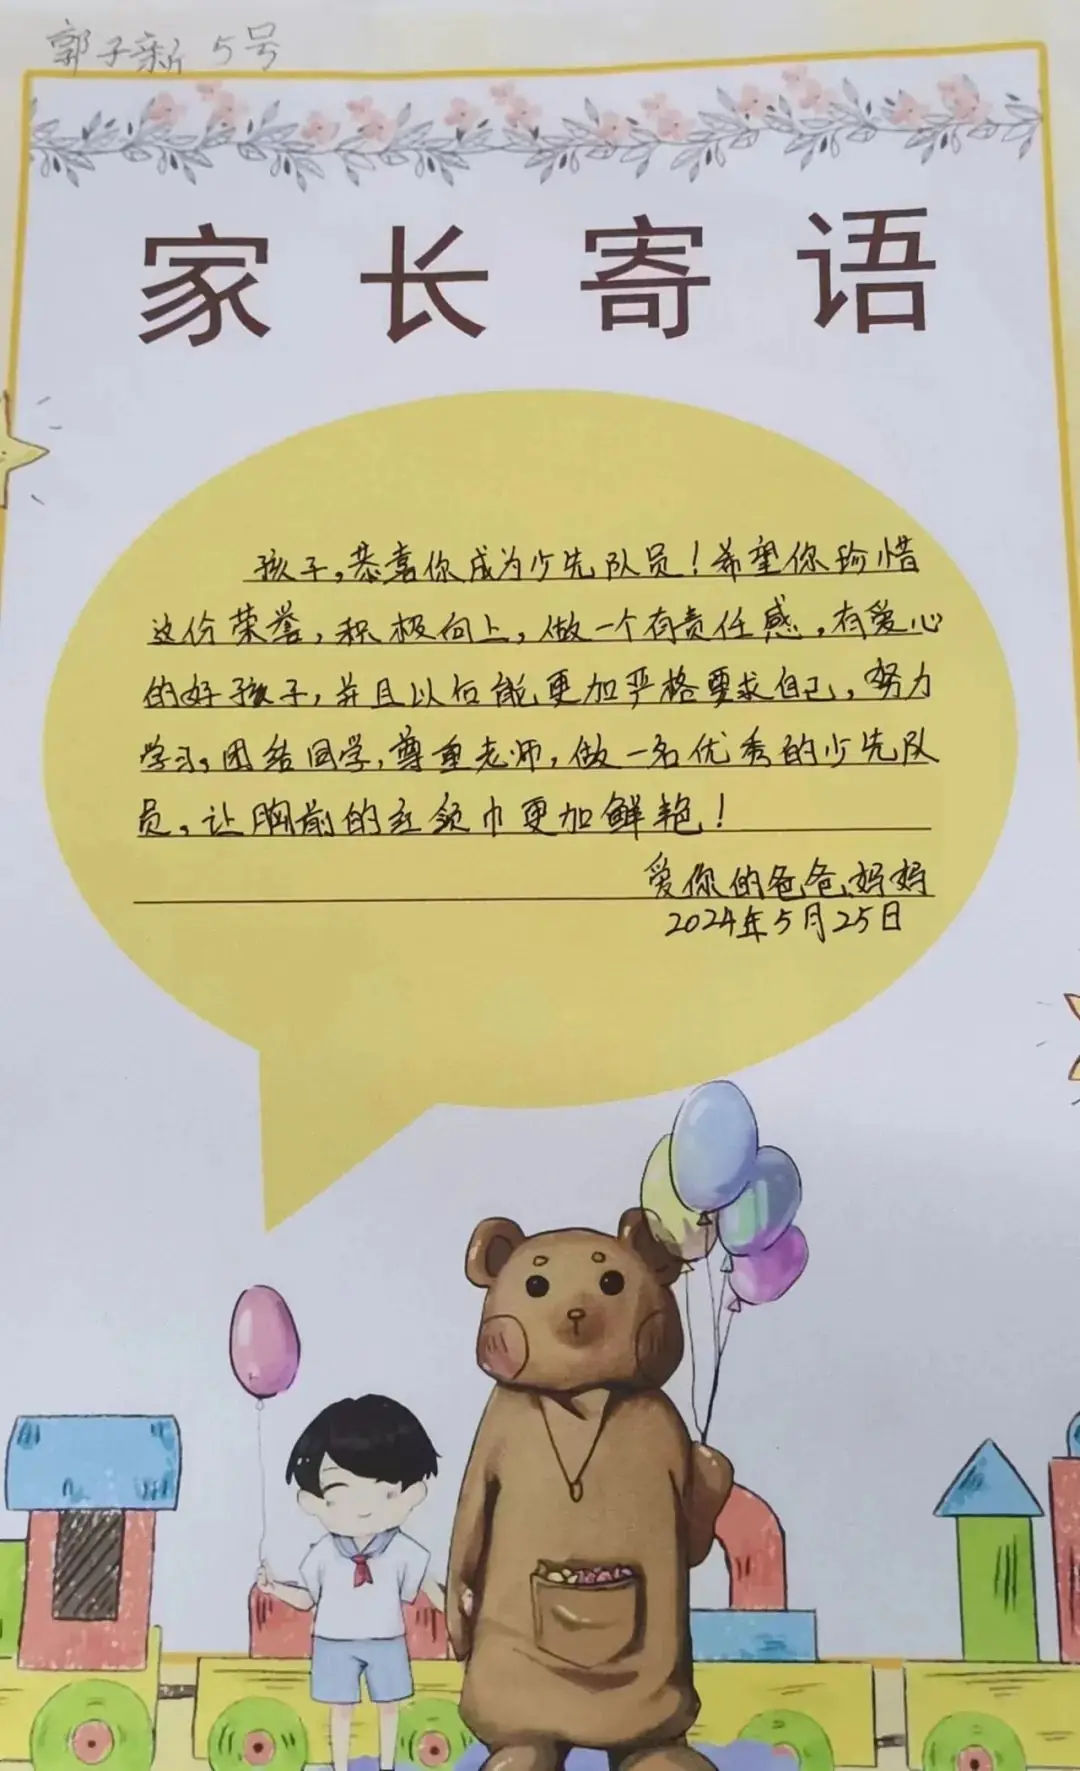 郭子新 5号
家长寄语
孩子，恭喜你成为少先队员！希望你珍惜
这份荣誉，积极向上，做一个有责任感，有爱心
的好孩子，并且以后能更加严格要求自己，努力
学习，团结同学，尊重老师，做一名优秀的少先队
员，让胸前的红领巾更加鲜艳！
爱你的爸爸、妈妈
2024年5月25日